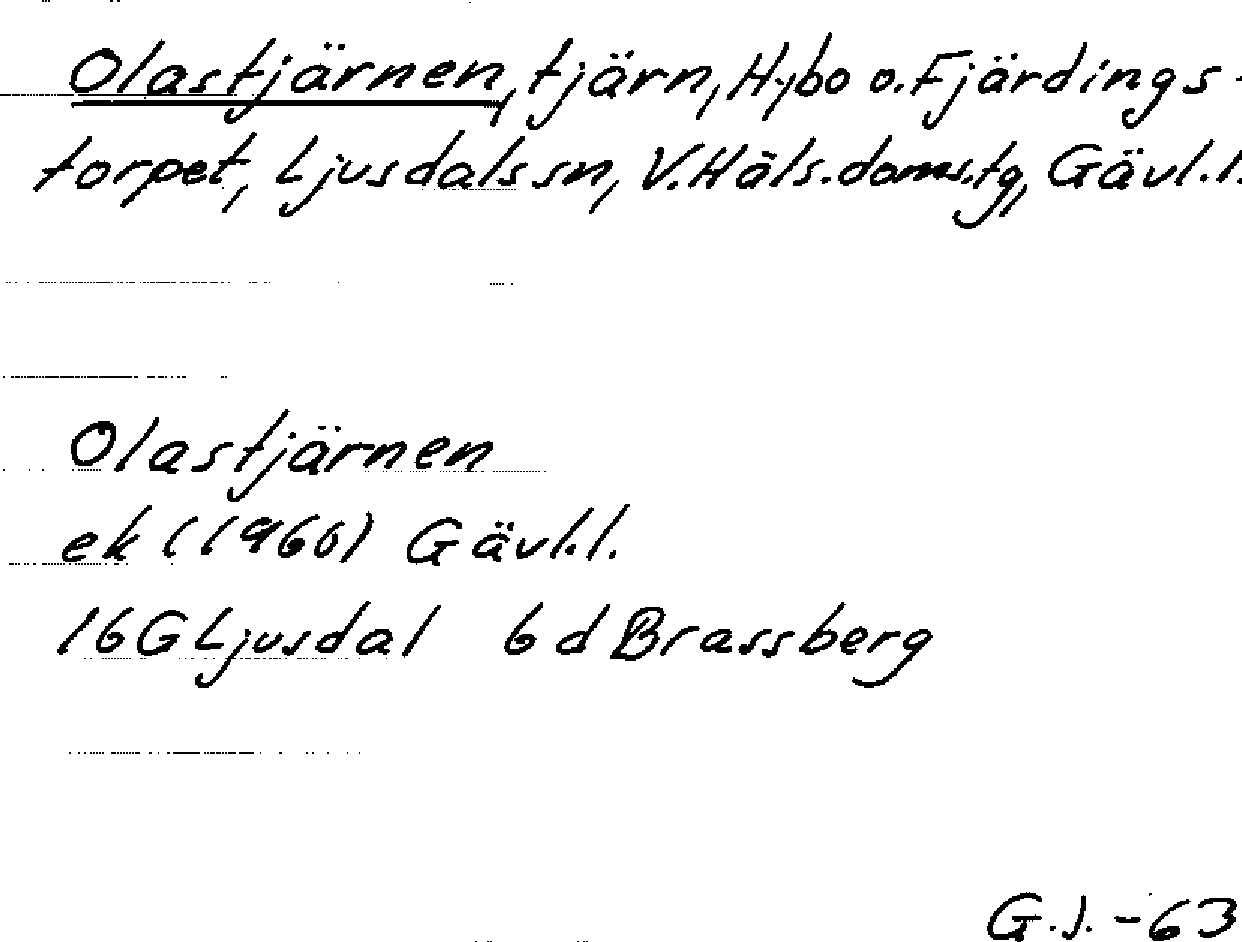 Olastjärnen, tjärn, Hybo o. Fjärdings-
torpet, Ljusdals sn, V. Häls. doms.tg, Gävl.l.
Olastjärnen
ek (1960) Gävl.l.
16G Ljusdal 6d Brassberg
G.J. -63